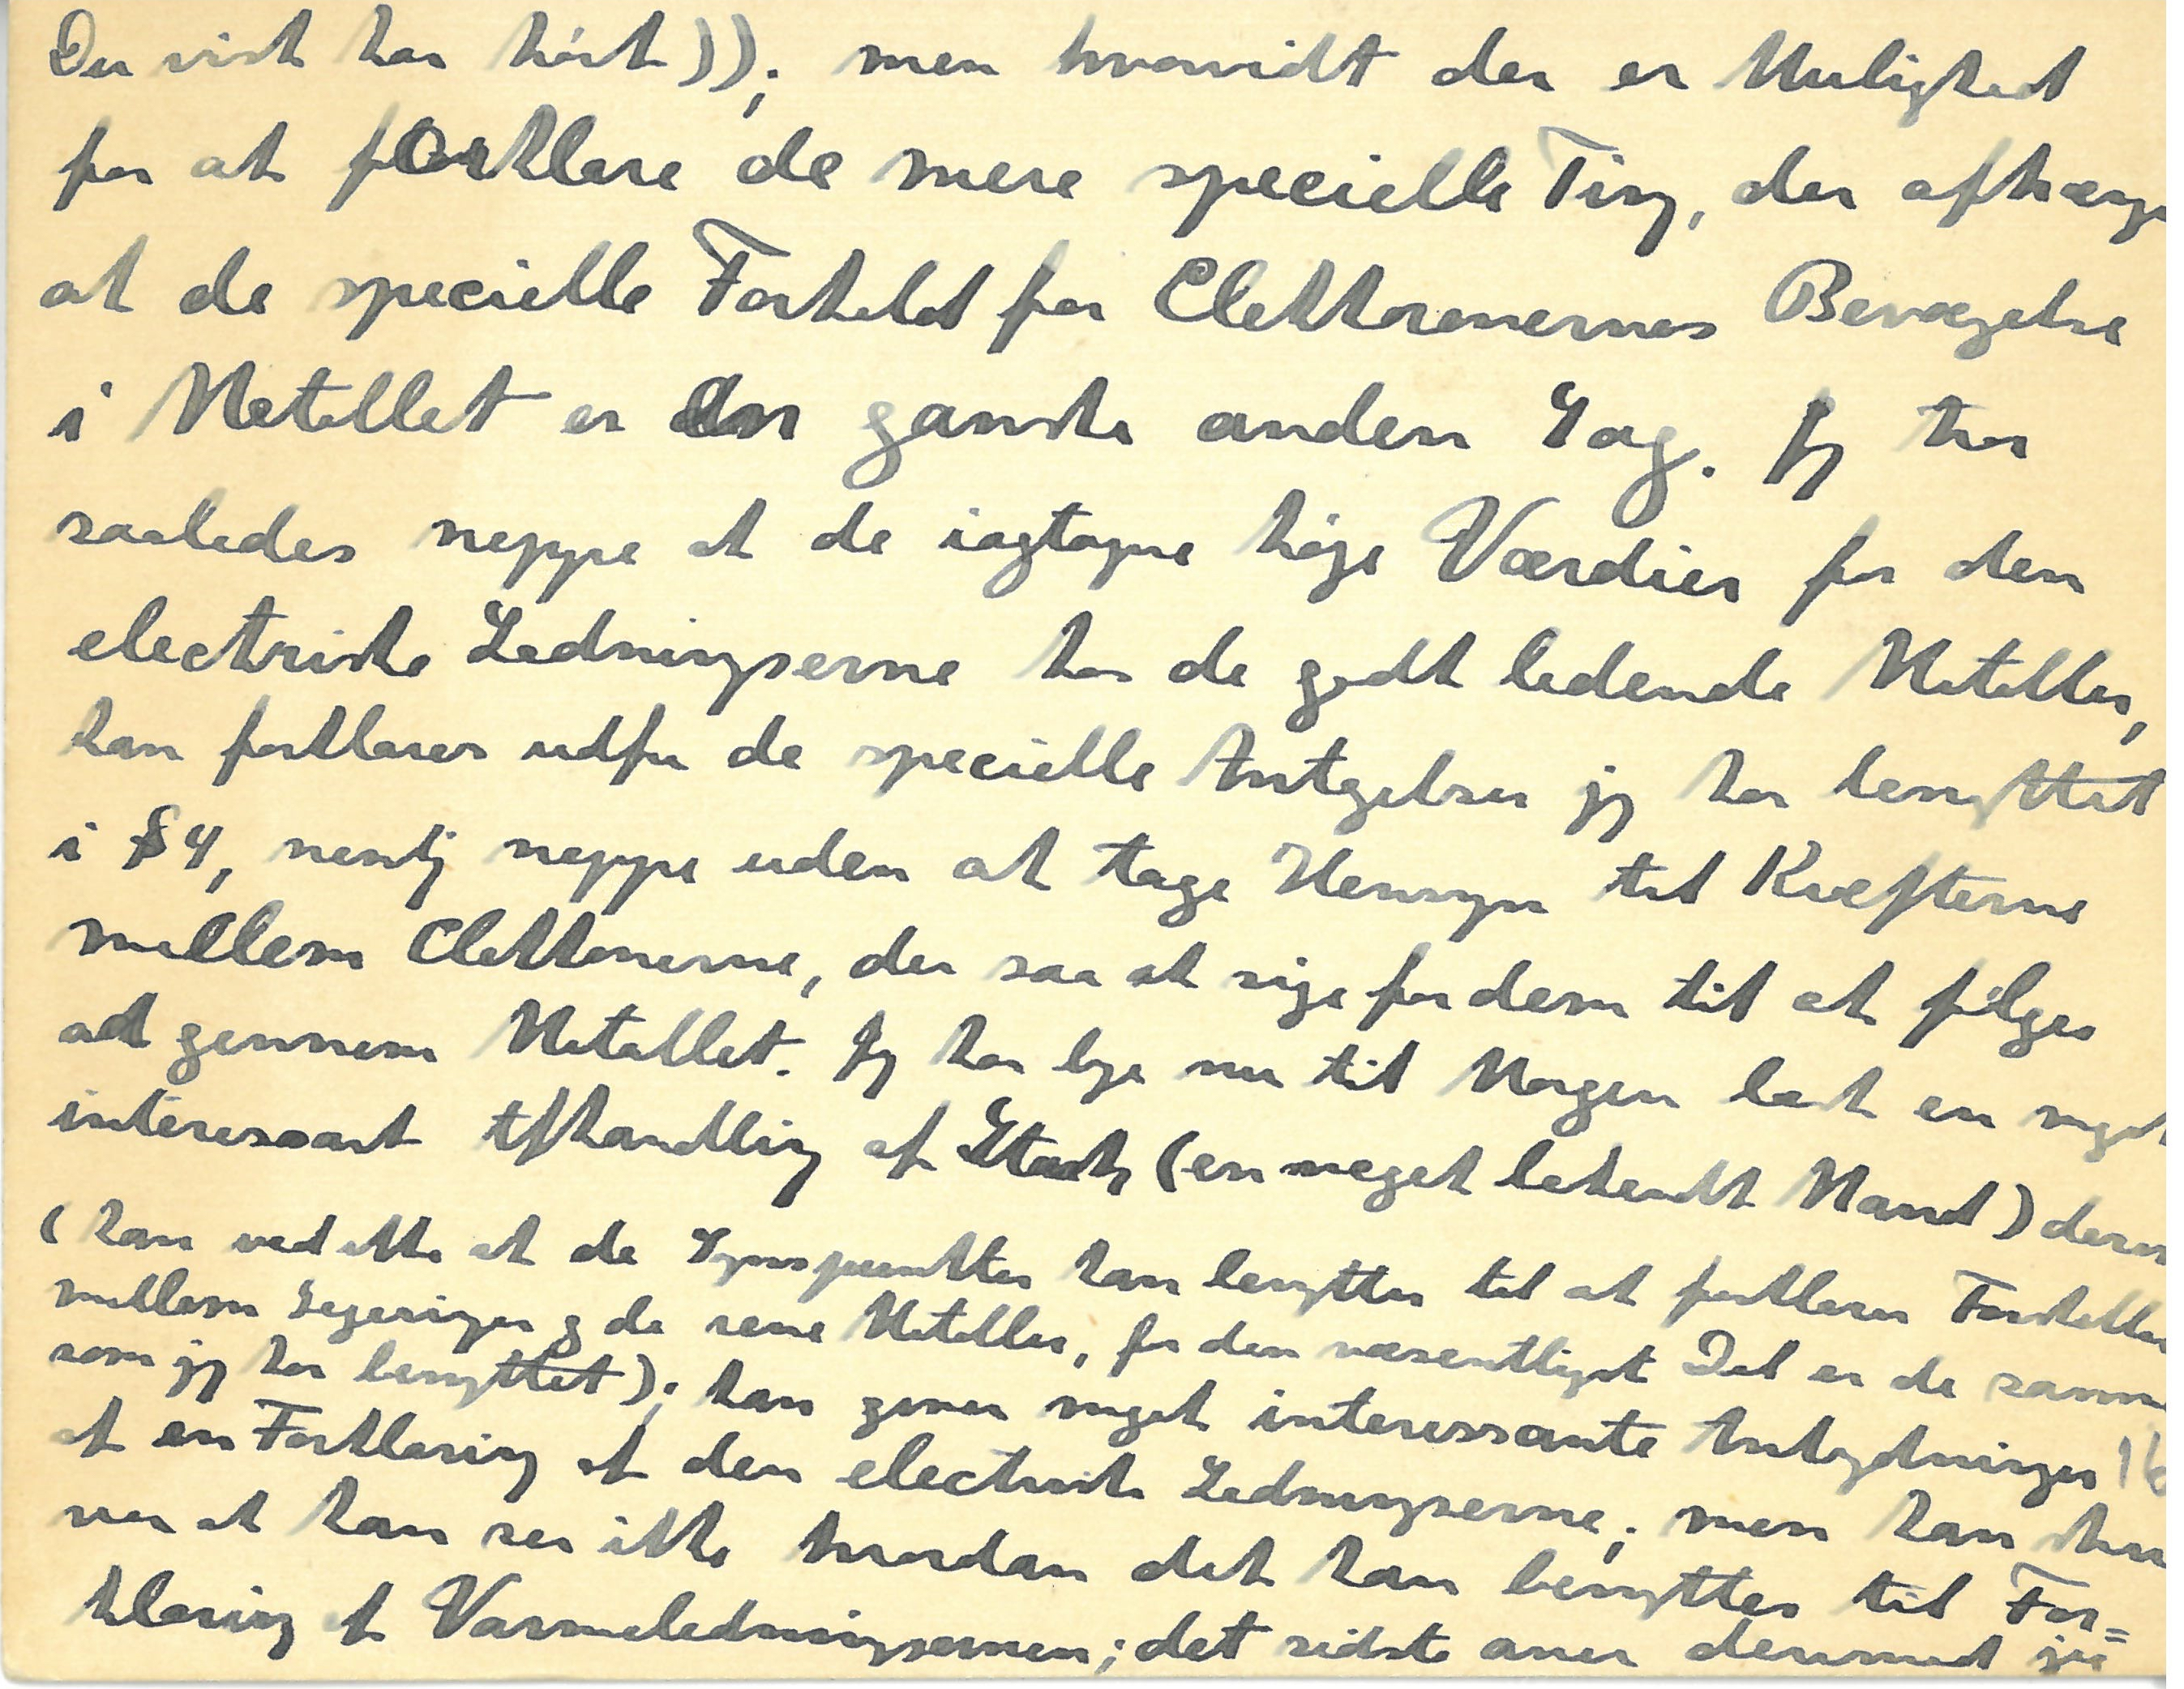 Du vist har hört)); men hvorvidt der er Mulighed
for at forklare de mere specielle Ting, der afhænge
af de specielle Forhold for Elektronernes Bevægelse
i Metallet er en ganske anden Sag. Jeg tror
saaledes neppe at de iagtagne høje Værdier for den
electriske Ledningsevne hos de godt ledende Metaller,
kan forklares udfra de specielle Antagelser jeg har benyttet
i §4, nemlig neppe uden at tage Hensyn til Kræfterne
mellem Elektronerne, der saa at sige faar dem til at følges
ad gennem Metallet. Jeg har lige nu til Morgen læst en meget
interessant Afhandling af Stark (en meget bekendt Mand) derom
(han ved ikke at de Synspunkter han benytter til at forklare Forskellen
mellem Legeringer og de rene Metaller, for den væsentligste Del er de samme
som jeg har benyttet); han giver meget interessante Antydninger
af en Forklaring af den electriske Ledningsevne; men han skri
ver at han ser ikke hvordan det kan benyttes til For=
klaring af Varmeledningsevnen; det sidste aner derimod jeg